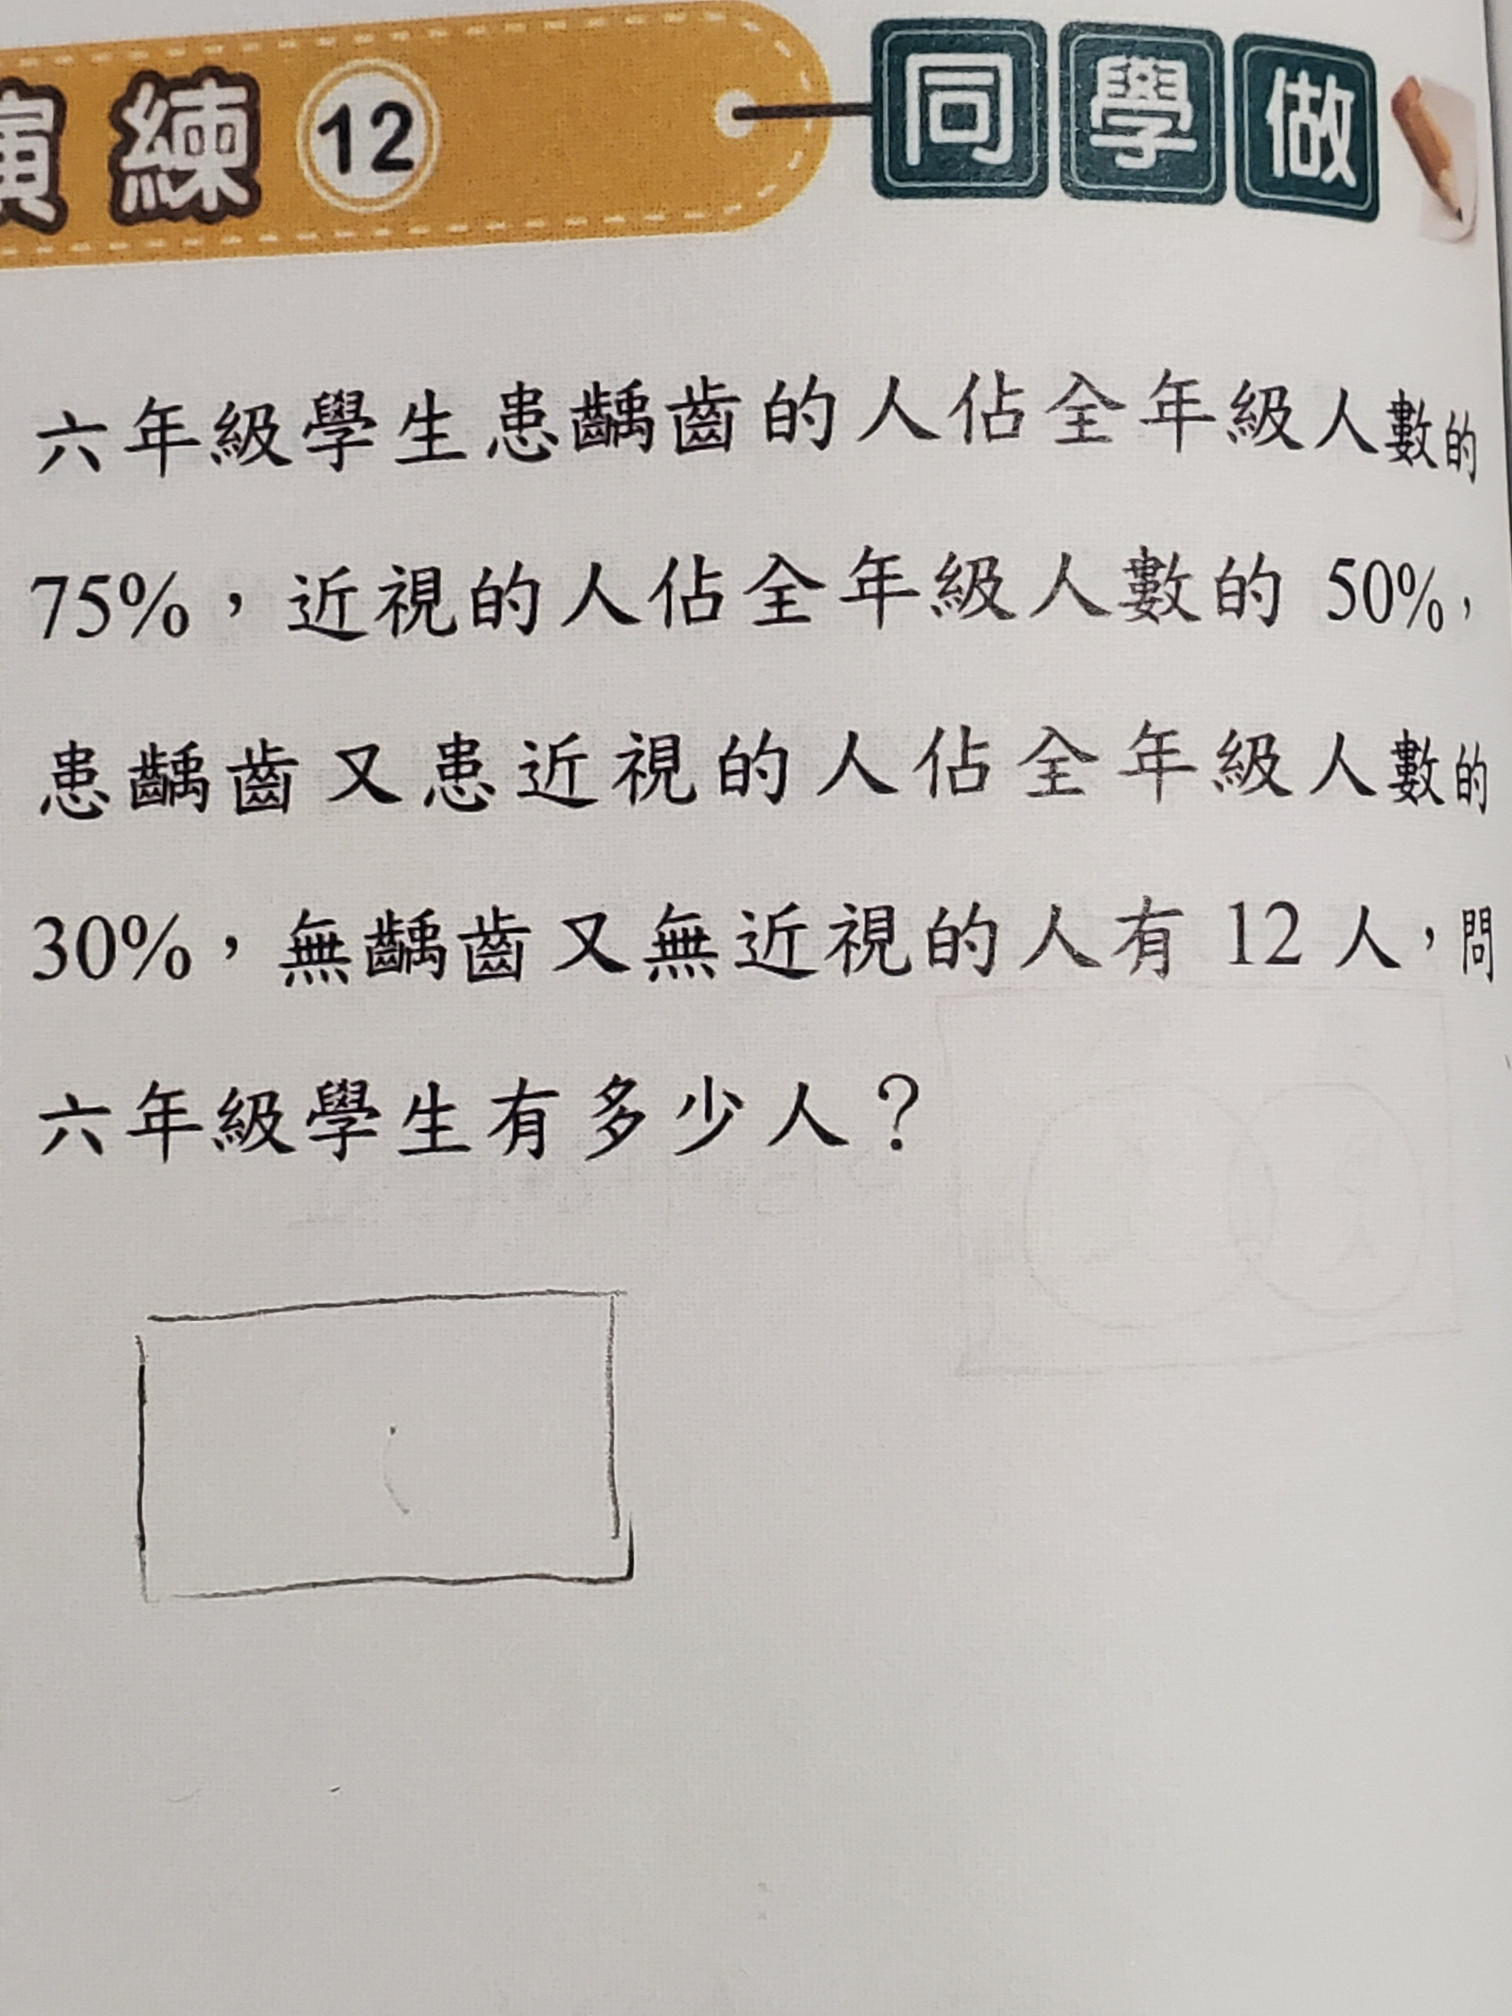 演練 12 同學做
六年級學生患齲齒的人佔全年級人數的
75%，近視的人佔全年級人數的 50%，
患齲齒又患近視的人佔全年級人數的
30%，無齲齒又無近視的人有 12 人，問
六年級學生有多少人？